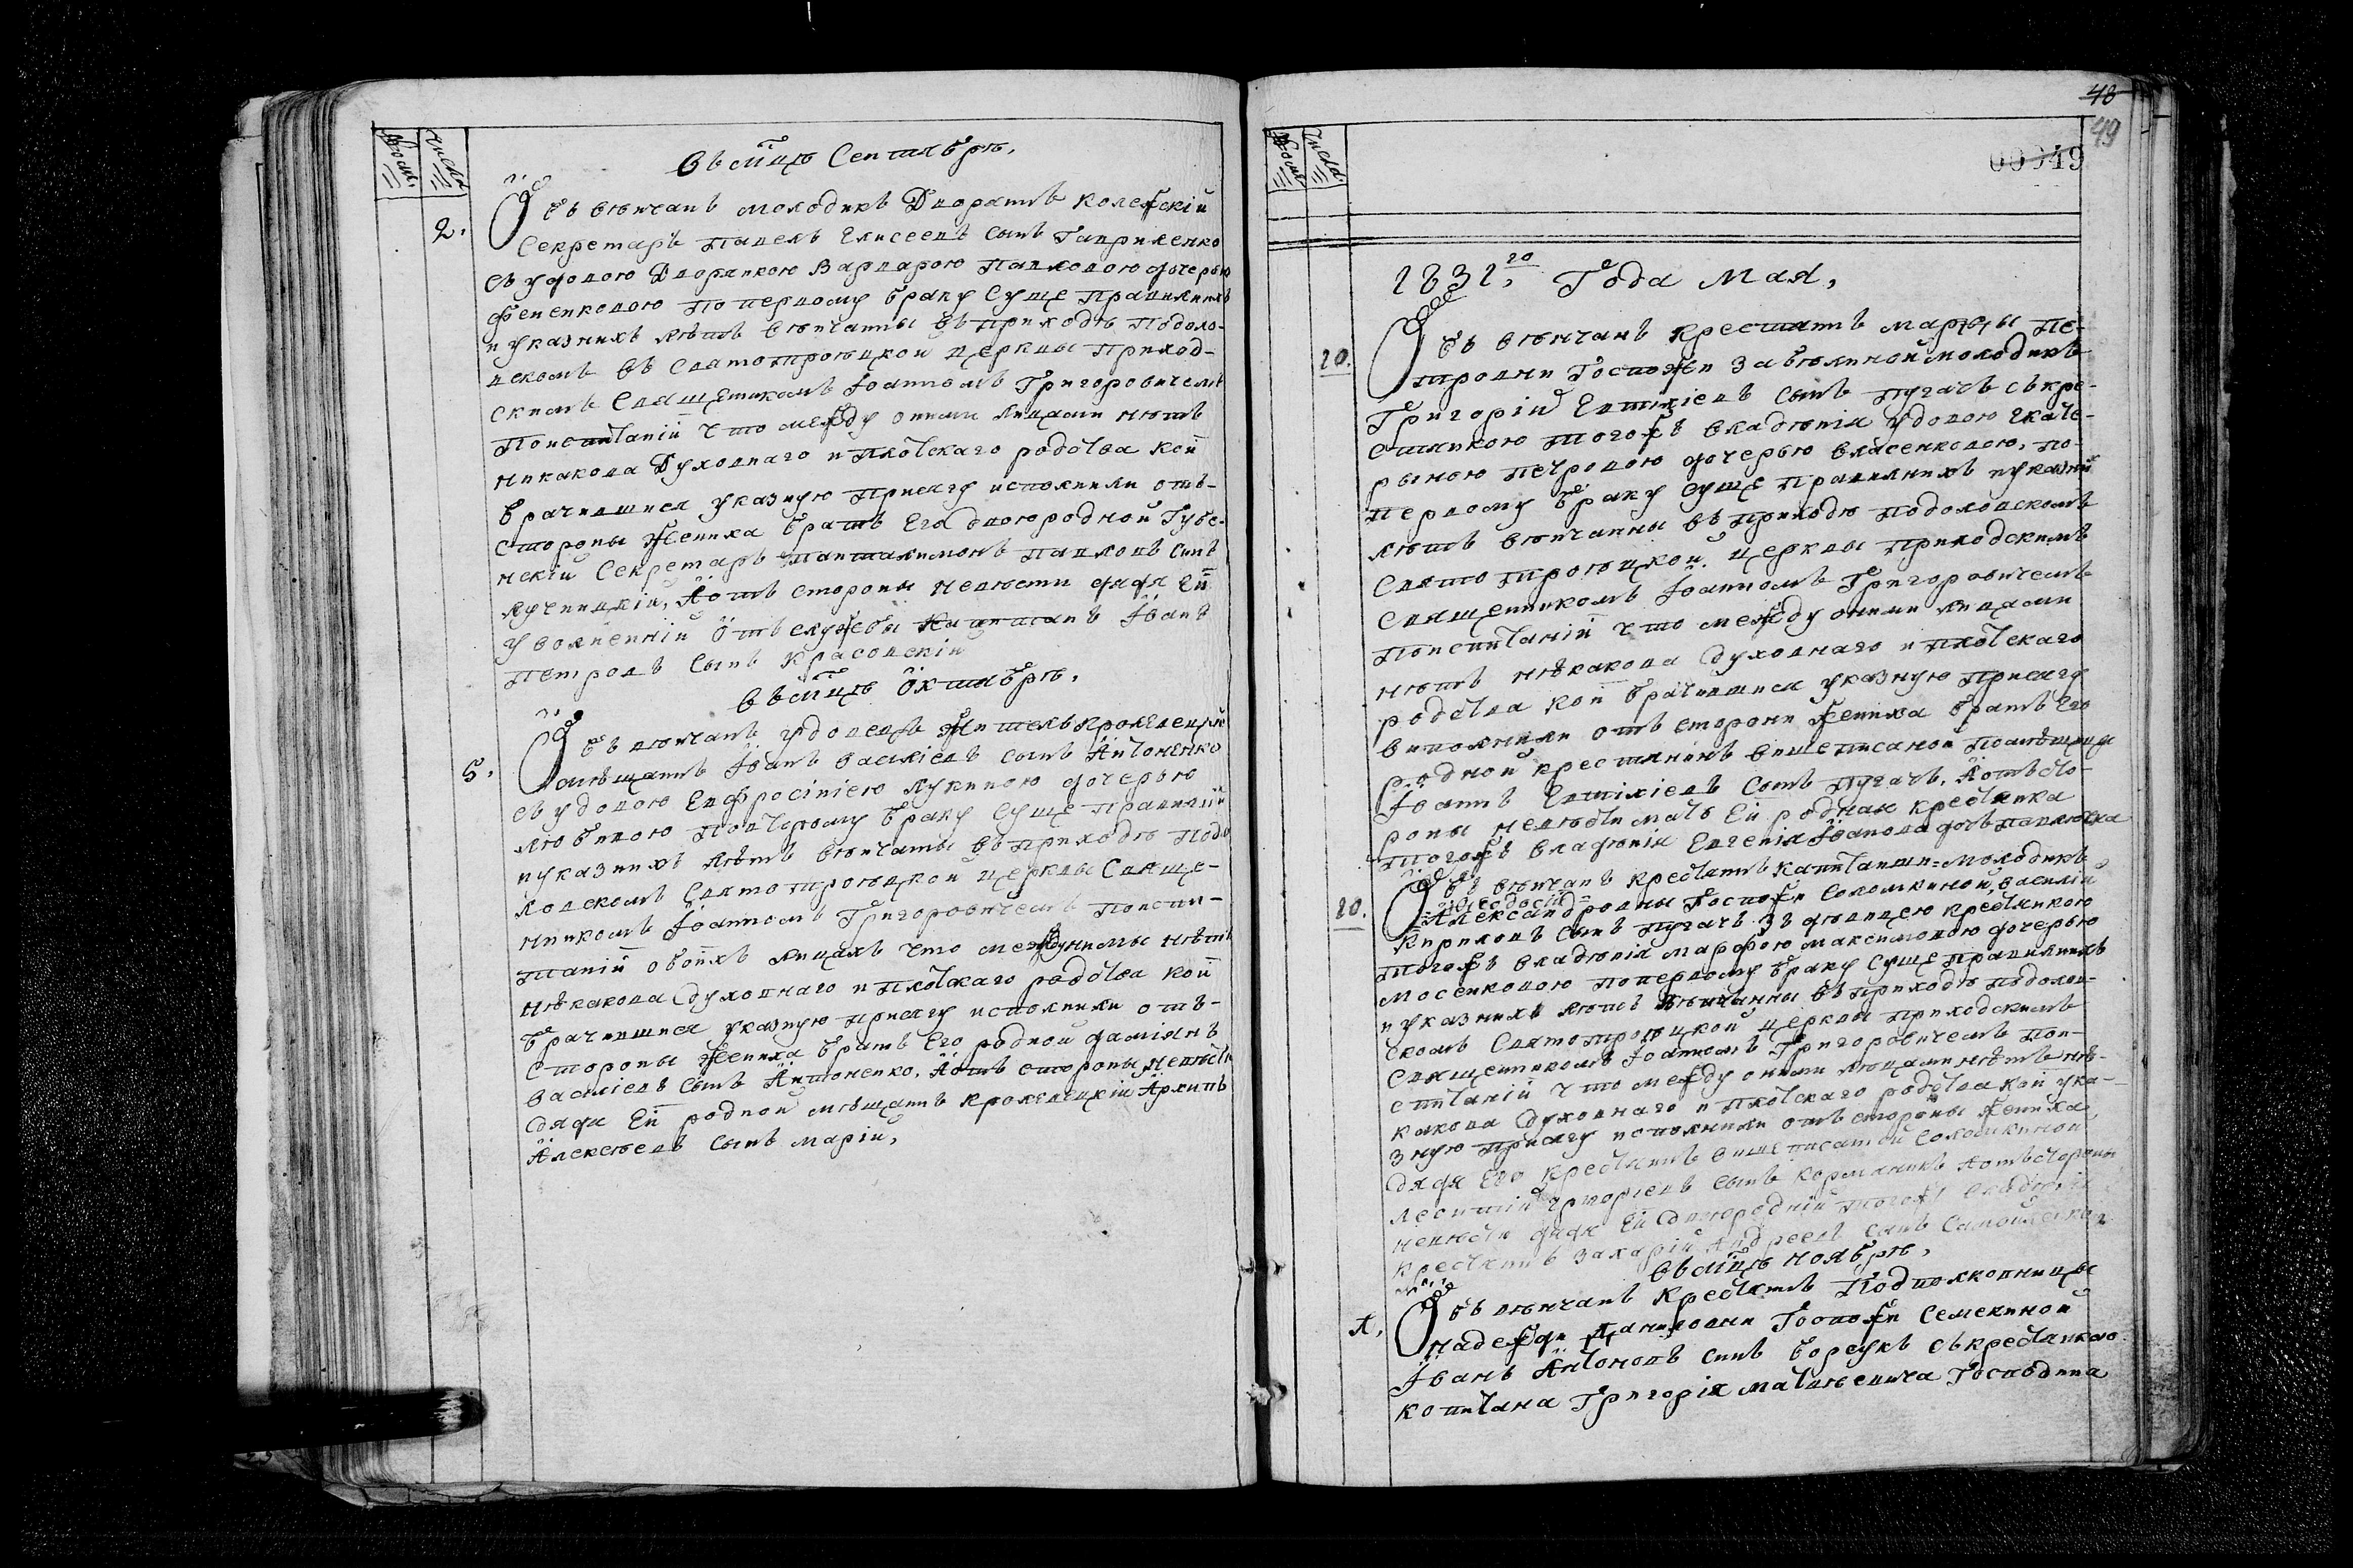 Числа
въ мцѣ Сентябрѣ,
2. Обвѣнчанъ молодикъ Дворянъ колежскій
Секретаръ Павелъ Елисеевъ Сынъ Гавриленко
съ удовою Дворянкою Варварою Павловою дочерью
по первому браку Суще Правилнихъ
и указнихъ лѣтъ вѣнчанны въ приходѣ Подоло-
вскомъ въ Святотроецкой церквы Приход-
скимъ Священикомъ Іоанномъ Григоровичемъ
Поиспитаніи что между оними лицами нѣтъ
никакова Духовнаго и плотскаго родства кои
брачившиеся указную Присягу исполнили отъ-
стороны Жениха братъ Его двоюродной Губе-
нскій Секретаръ Пантилимонъ Павловъ Синъ
Лучницкій, Аотъ стороны невѣсти дядя Ей
уволненній Отъ службы Іванъ
Петровъ Сынъ Красовскій
въ мцѣ Октябрѣ,
5. Обвѣнчанъ удовецъ Житель Кролевецкій
мѣщанинъ Іванъ Василіевъ Сынъ Антоненко
съ удовою Евфросініею Лукиною дочерью
Любивою Повторому браку Суще Правилній
и указнихъ лѣтъ вѣнчаны въ приходѣ Подо
ловскомъ Святотроецкой церквы Свяще-
нникомъ Іоанномъ Григоровичемъ Поиспи-
таніи обоихъ лицахъ что межунимы нѣтъ
нѣкакова Духовнаго и плотскаго родства кои
брачившиеся указную присягу исполнили отъ-
Стороны Жениха братъ Его родной Даміянъ
Василіевъ Сынъ Антоненко, Аотъ стороны невѣсти
Дядя Ей родной мѣщанинъ Кролевецкій Архипъ
Алексѣевъ Сынъ Марій,
48
49
00049
Числа
1831, го Года Мая,
20. Обвѣнчанъ Крестянинъ Марѳы Пе-
тровни Госпожи Забѣлиной молодикъ
Григорій Евтихіевъ Сынъ Пугачъ съ кре-
стянкою тогожъ владѣнія удовою Екате-
рыною Петровою дочерью Власенковою, по
первому браку Суще Правилнихъ и указній
лѣтъ вѣнчанны въ приходѣ Подоловскомъ
Святотроецкой церквы приходскимъ
Священникомъ Іоанномъ Григоровичемъ
Поиспитаніи что между оними лицами
нѣтъ нѣкакова Духовнаго и плотскаго
родства кои брачившиеся указную Присягу
виполнили отъ стороны Жениха братъ Его
родной крестянинъ вишеписаной Помѣщици
Іоаннъ Евтихіевъ Сынъ Пугачъ, Аотъ сто-
роны невѣсти мать Ей родная крестянка
тогожъ владѣнія Евгенія Іванова дочъ
20. Обвѣнчанъ Крестянинъ Капитанши Молодикъ
Феодосіи
Александровны Госпожи Соломкиной, Василій
Кириловъ Сынъ Пугачъ Зъ дѣвицею крестянкою
тогожъ владѣнія Марфою Максимовою дочерью
Мосенковою поперъвому браку Суще правилнихъ
и указнихъ лѣтъ вѣнчанны въ приходѣ подолов-
скомъ Святотроецкой церквы приходскимъ
Священикомъ Іоанномъ Григоровичемъ Пои-
спитаніи что между оними лицами нѣтъ нѣ-
какова Духовнаго и плотскаго родства кои ука-
зную присягу исполнили отъ стороны Жениха
Дядя Его Крестянинъ вишеписаной Соломкиной
Леонтій Григоріевъ Сынъ Аотъ стороны
невѣсти дядя Ей двоюродній тогожъ владѣнія
крестянинъ Захарій Андреевъ Синъ Самойленко
въ мцѣ Ноябрѣ,
Обвѣнчанъ Крестянинъ Подполковницы
Надежди Даниловни Госпожи Семекиной
Іванъ Антоновъ Синъ Борсукъ съ крестянкою
копитана Григорія Матвѣевича Господина